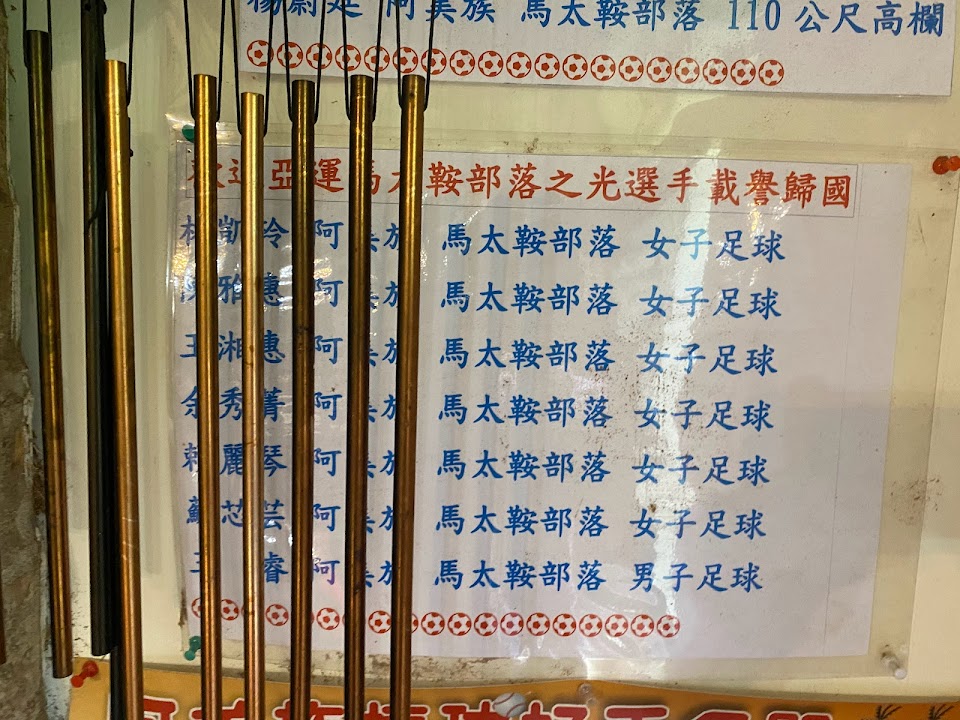 楊蔚廷 阿美族 馬太鞍部落 110 公尺高欄
歡迎亞運馬太鞍部落之光選手載譽歸國
林凱玲 阿美族 馬太鞍部落 女子足球
雅惠 阿美族 馬太鞍部落 女子足球
王湘惠 阿美族 馬太鞍部落 女子足球
余秀菁 阿美族 馬太鞍部落 女子足球
賴麗琴 阿美族 馬太鞍部落 女子足球
蘇芯芸 阿美族 馬太鞍部落 女子足球
王睿 阿美族 馬太鞍部落 男子足球